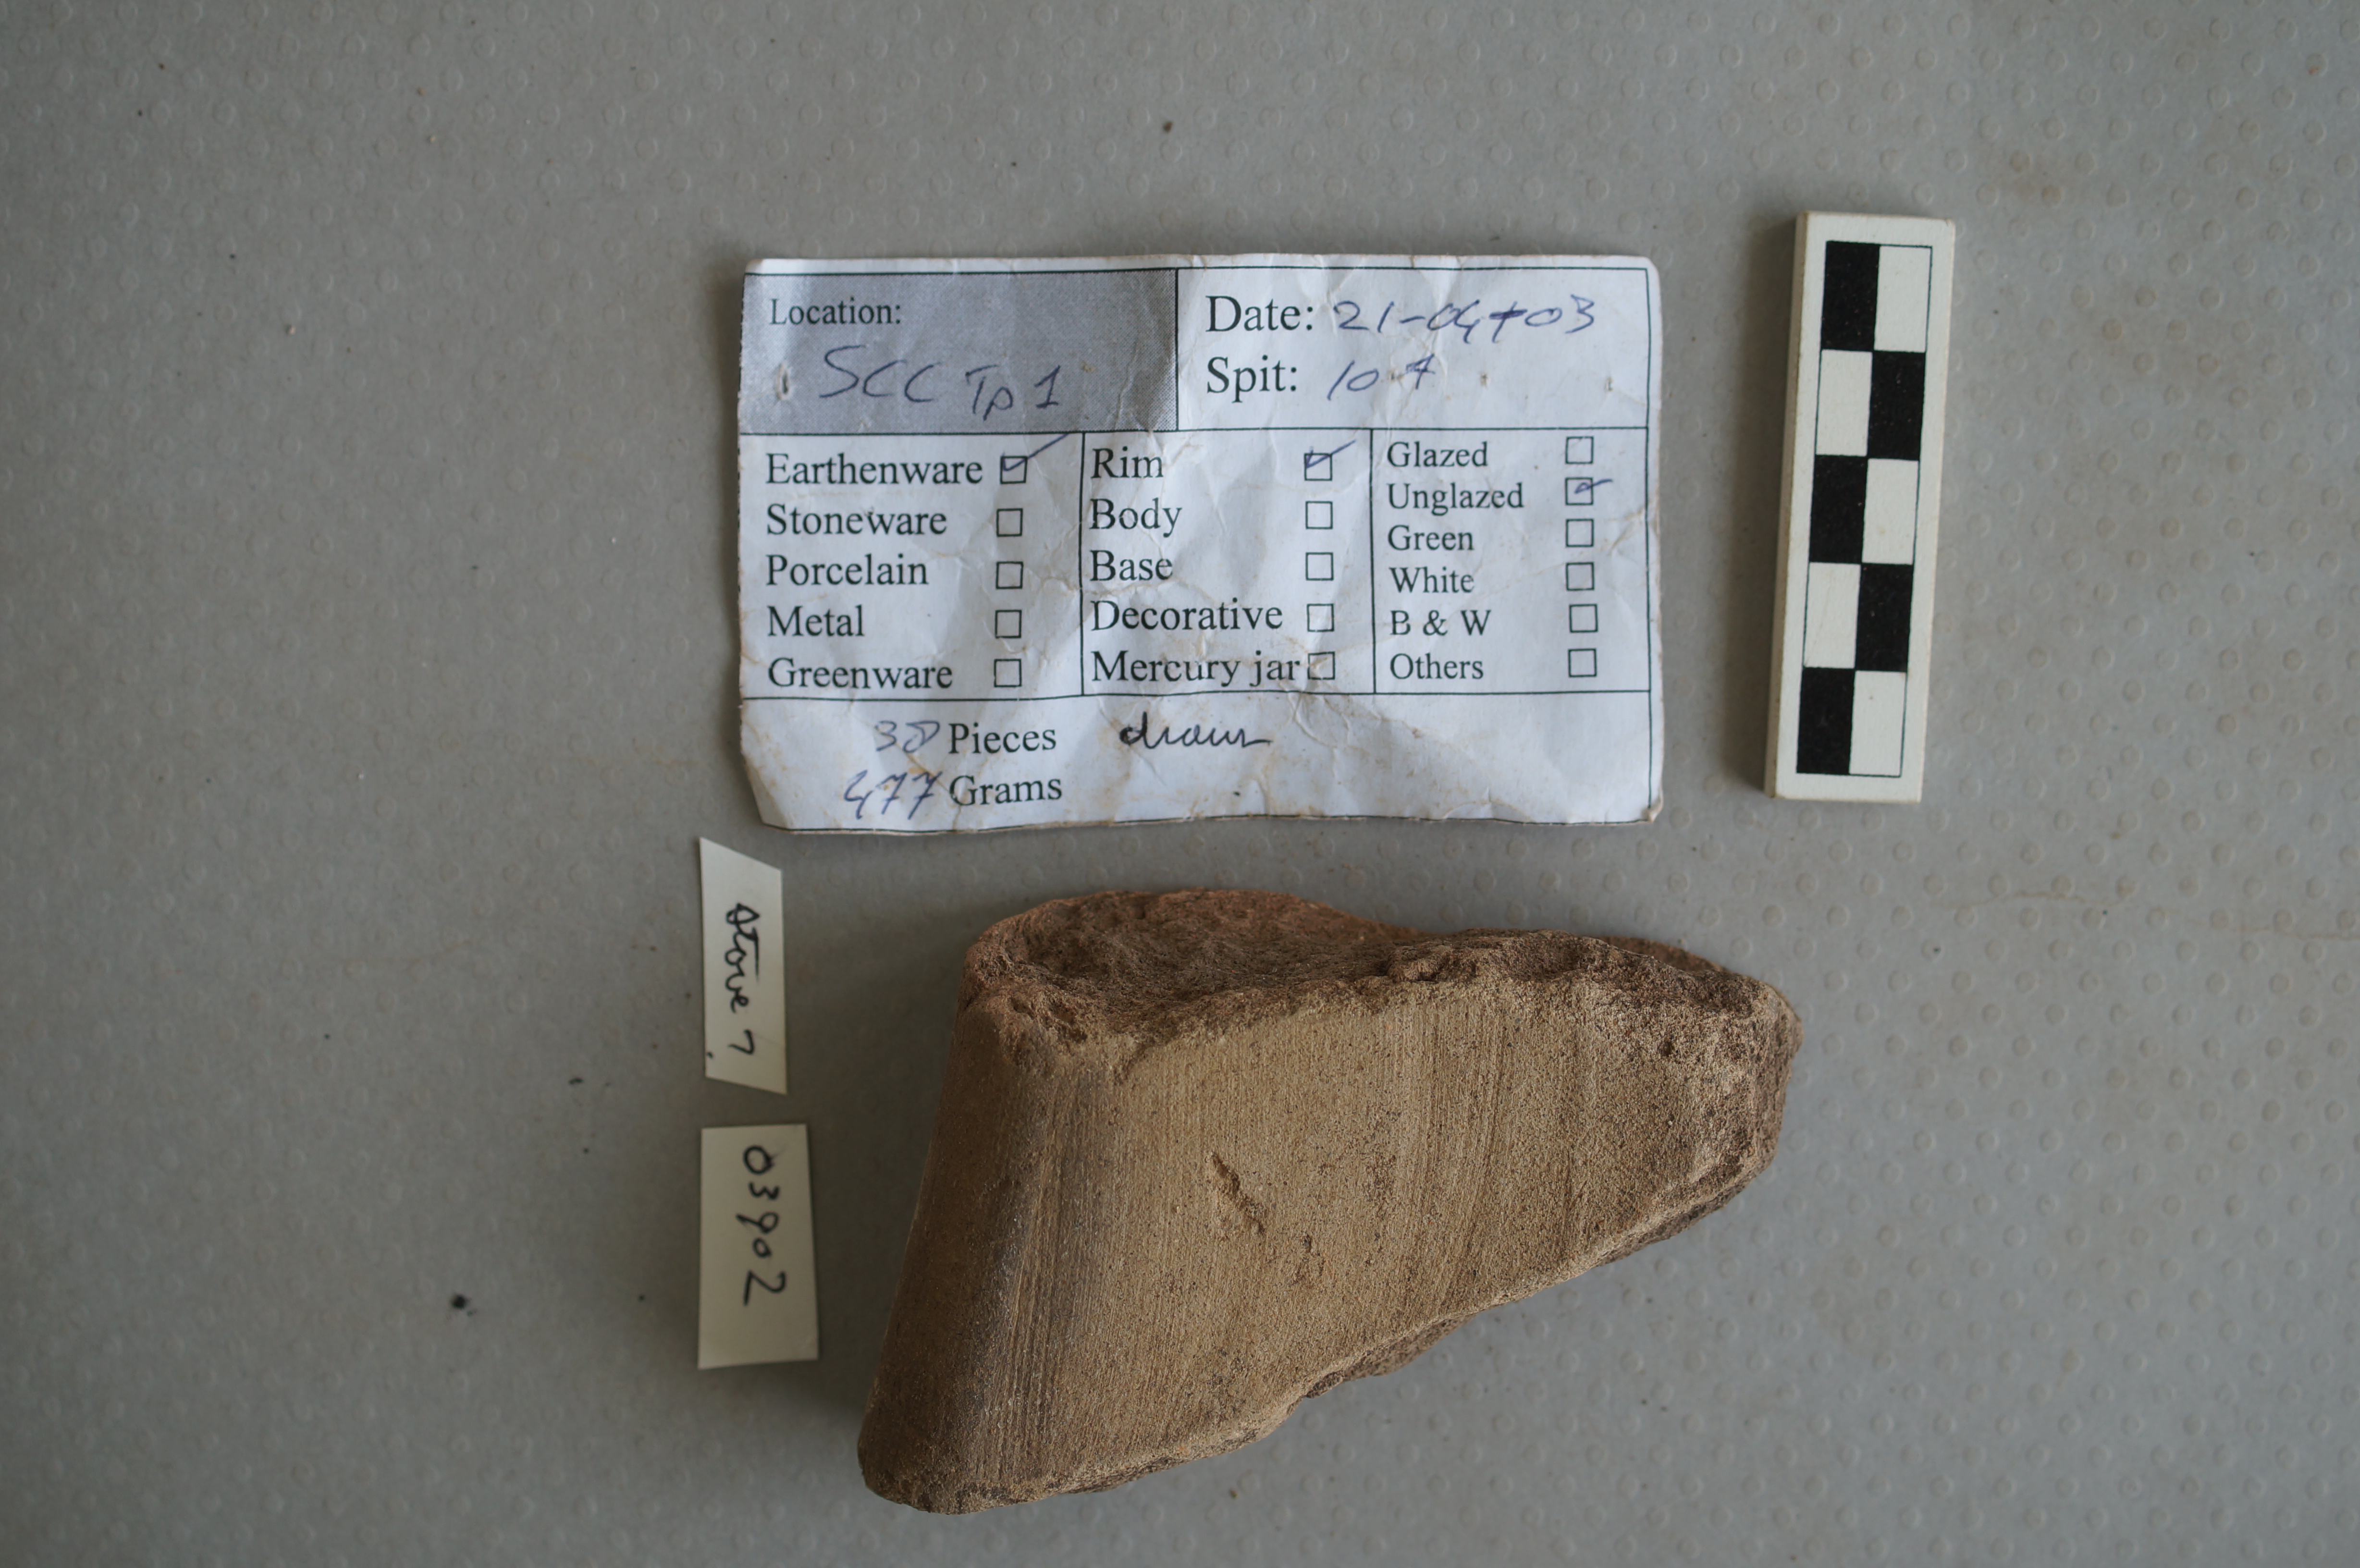 03902
stove ?
Location:
SCC Tp 1
Date: 21-04-03
Spit: 10
Earthenware ☑
Stoneware ☐
Porcelain ☐
Metal ☐
Greenware ☐
Rim ☑
Body ☐
Base ☐
Decorative ☐
Mercury jar ☐
Glazed ☐
Unglazed ☑
Green ☐
White ☐
B & W ☐
Others ☐
Pieces
drawn
477 Grams